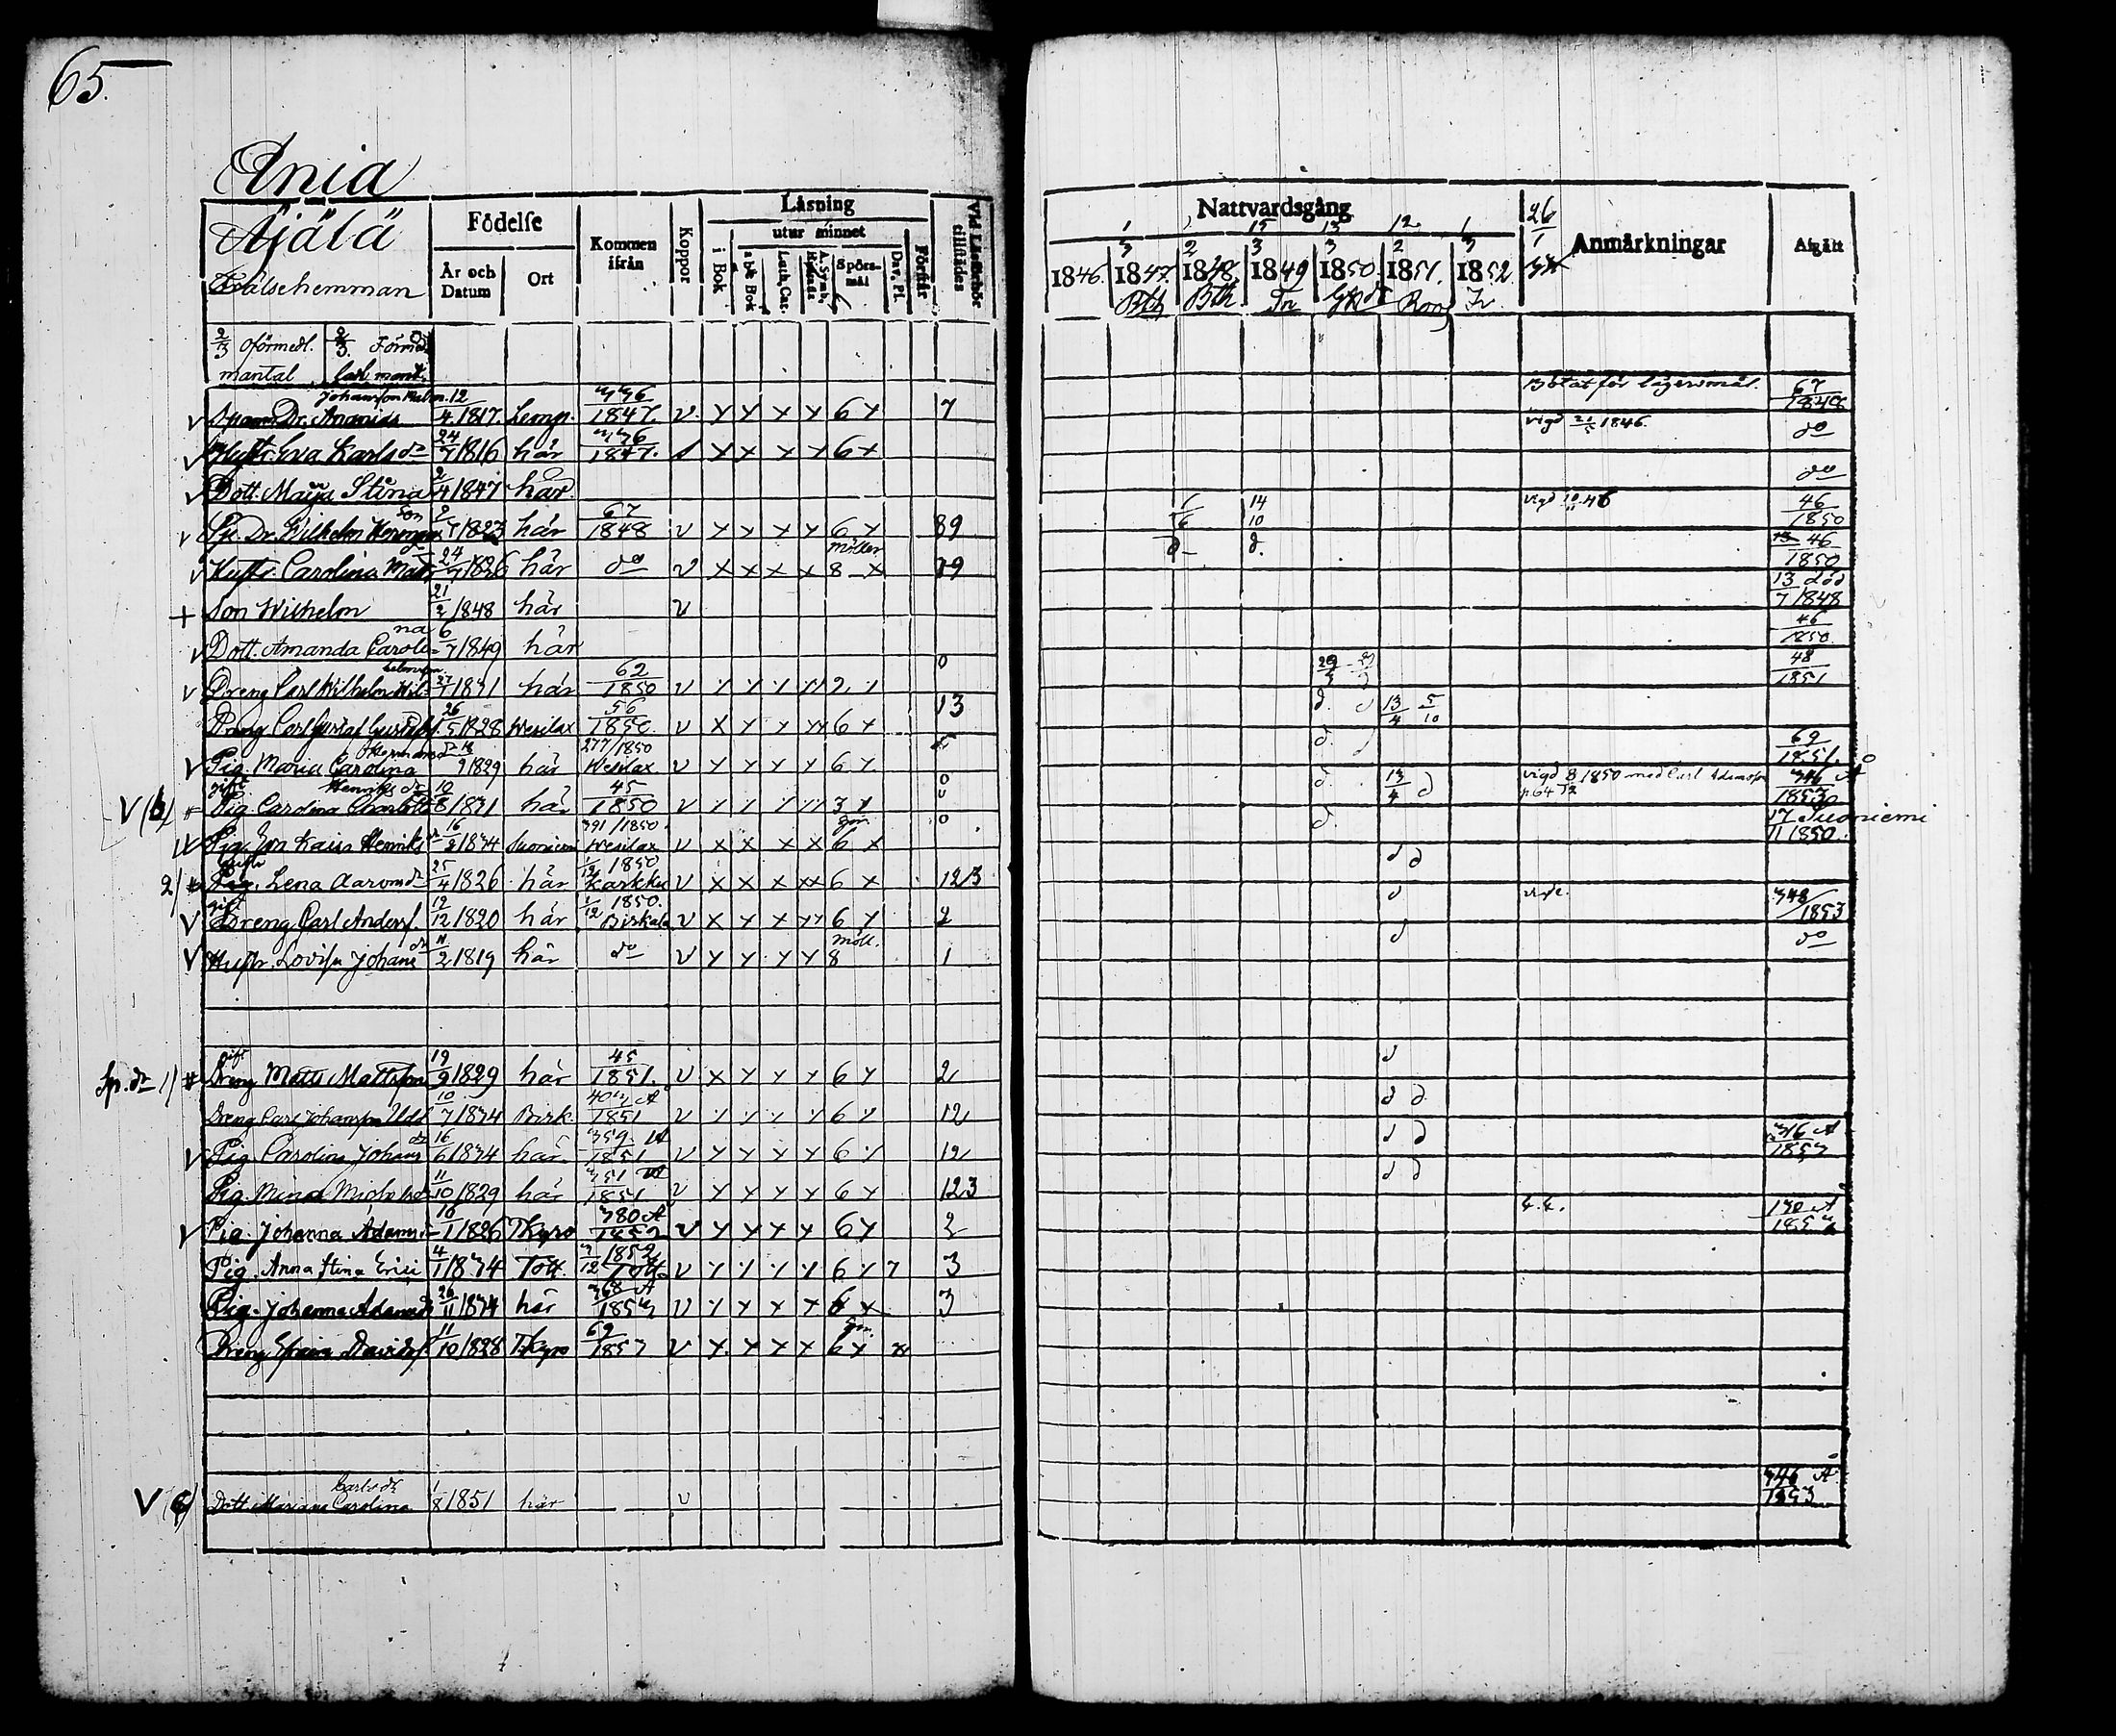 65.
Ania
Äjälä
Frälsehemman
Födelse
År och Datum
Ort
Kommen ifrån
Koppor
Läsning
utur minnet
i Bok
Luth. Cat.
A. Symb.
Spörsmål
Dav. Ps.
Förstår
Vid Läseförhör tillstädes
Nattvardsgång
1 1 15 13 12 1
3 2 3 3 2 3
1846. 1847. 1848. 1849 1850. 1851. 1852.
Bth Bth Tn Roos
26/1
Anmärkningar
Afgått
2/3 oförmedl. mantal 2/3. Förmedlad mant.
v Johansson Malm. Ananias 12/4 1817. Lemp. 336/1847. v x x x x 6 x 7 Bötat för lägersmål. 67/1848
v Hustr. Eva Karlsdr 24/7 1816 här 336/1847. x x x x 6 x vigd 1846. do
v Dott. Maja Stina 2/4 1847 här do
v Sp. Dr. Wilhelm Hermansson 1823 här 67/1848 v x x x x 6 x 89 1/6 14/10 vigd 46 46/1850
v Hustr. Carolina Mats dr 24/9 1826 här do v x x x x 8 x möller 79 d d. 46/1850
+ Son Wilhelm 21/2 1848 här v 13 död 7/1848
v Dott. Amanda Carolina 6/7 1849 här 46/1850.
v Dreng Carl Wilhelm Wilhelmsson 27/1 1831 här 62/1850 v 2 0 48/1851
Dreng Carl Gustaf Gustafss. 26/5 1828 Wesilax 56/1850. v x x x xx 6 x 13 d. d 13/4 5/10
v Pig. Maria Carolina Hermansdr 9 1829 här 277/1850 Wesilax v x x x x 6 x d. 62/1851.
V (b) # gift Pig. Carolina Charlotta Henriksdr 10/8 1831 här 45/1850 v 3 x 0 d. 13/4 d vigd 8/12 1850 med Carl Adamsson p. 64 346 A/1853
Pig. Eva Kaisa Henriksdr 16/2 1834 Suoniemi 391/1850. Wesilax v x x x x 6 x 0 d. 17 Suoniemi 11/1850.
2) # Hustr Pig. Lena Aaronsdr 25/4 1826 här 1850 Karkku v x x x xx 6 x 123 d d
V gift Dreng Carl Anderss. 12/12 1820 här 1/12 1850. Birkala v x x x xx 6 x 2 d 348/1853
V Hustr. Lovisa Johansdr 11/2 1819 här do v x x x x 8 möll. 1 d do
Sp. dr 1) # gift Dreng Matts Mattsson 19/9 1829 här 45/1851. v x x x x 6 x 2 d
Dreng Carl Johansson 10/7 1834 Birk. 403 A/1851 v 6 12 d d
V Pig. Carolina Johansdr 16/6 1834 här 359. A/1851 v x x x x 6 12 d d 316 A/1853
Pig. Mina Michelsdr 11/10 1829 här 351 A/1851 v x x x x 6 x 123 d d
v Pig. Johanna Adamsdr 16/1 1826 TKyro 380 A/1852 v x x x x 6 x 2 130 A
Pig. Anna Stina Erici 4/1 1834 Tott. 1852 Tott. v 6 7 3
Pig. Johanna Adamsdr 26/11 1834 här 368 A/1853 v x x x x 6 x 3
Dreng Efraim Davidss. 11/10 1828 TKyro 69/1853 v x x x x 6 x
V (c) Dott. Mariana Carolina Carlsdr 1/8 1851 här v 346 A/1853